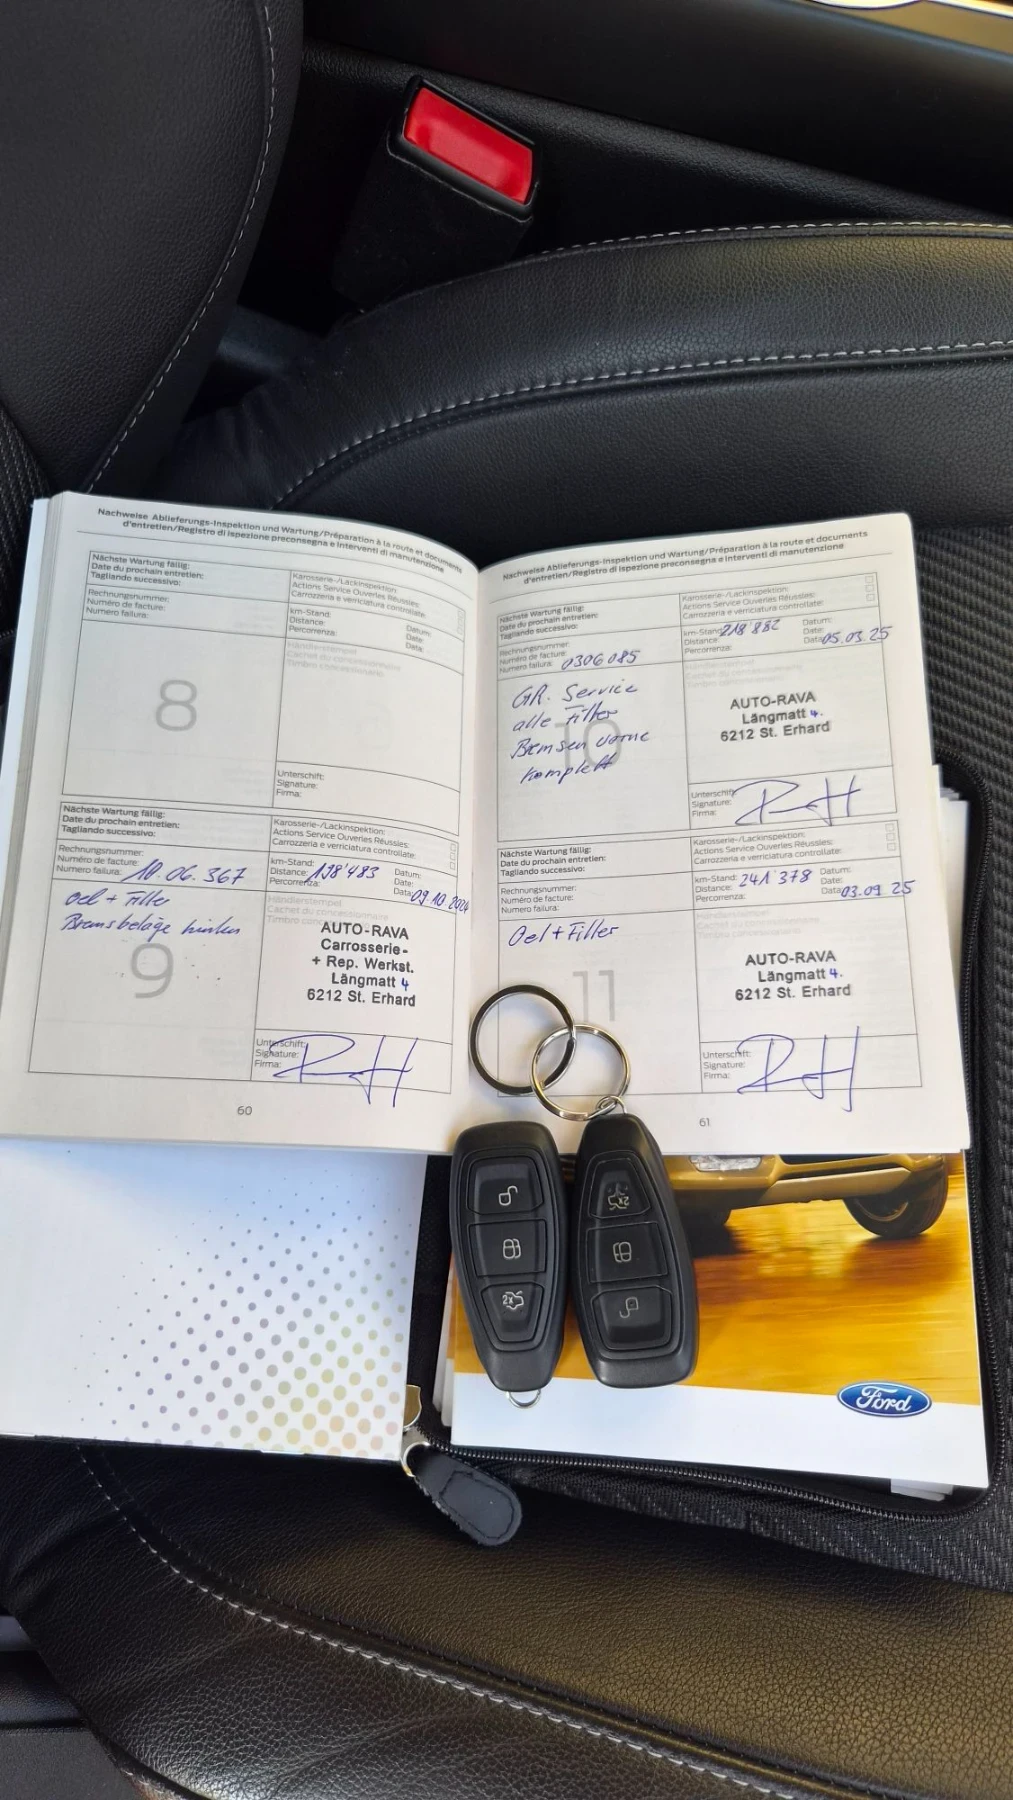 Nachweise Ablieferungs-Inspektion und Wartung/Préparation à la route et documents
d'entretien/Registro di ispezione preconsegna e interventi di manutenzione
Nächste Wartung fällig:
Date du prochain entretien:
Tagliando successivo:
Karosserie-/Lackinspektion:
Actions Service Ouvertes Réussies:
Carrozzeria e verniciatura controllate:
Rechnungsnummer:
Numéro de facture:
Numero failura:
km-Stand:
Distance:
Percorrenza:
Datum:
Date:
Data:
Händlerstempel
Cachet du concessionnaire
Timbro concessionario
8
Unterschrift:
Signature:
Firma:
Nächste Wartung fällig:
Date du prochain entretien:
Tagliando successivo:
Karosserie-/Lackinspektion:
Actions Service Ouvertes Réussies:
Carrozzeria e verniciatura controllate:
Rechnungsnummer:
Numéro de facture:
Numero failura: 10.06.367
km-Stand:
Distance: 198'483
Percorrenza:
Datum:
Date:
Data: 09.10.2024
Oel + Filter
Bremsbeläge hinten
9
Händlerstempel
Cachet du concessionnaire
Timbro
AUTO-RAVA
Carrosserie-
+ Rep. Werkst.
Längmatt 4
6212 St. Erhard
Unterschrift:
Signature:
Firma:
60
Nachweise Ablieferungs-Inspektion und Wartung/Préparation à la route et documents
d'entretien/Registro di ispezione preconsegna e interventi di manutenzione
Nächste Wartung fällig:
Date du prochain entretien:
Tagliando successivo:
Karosserie-/Lackinspektion:
Actions Service Ouvertes Réussies:
Carrozzeria e verniciatura controllate:
Rechnungsnummer:
Numéro de facture:
Numero failura: 0306085
km-Stand: 218'882
Distance:
Percorrenza:
Datum:
Date:
Data: 05.03.25
GR. Service
alle Filter
Bremsen vorne
komplett
10
AUTO-RAVA
Längmatt 4.
6212 St. Erhard
Unterschrift:
Signature:
Firma:
Nächste Wartung fällig:
Date du prochain entretien:
Tagliando successivo:
Karosserie-/Lackinspektion:
Actions Service Ouvertes Réussies:
Carrozzeria e verniciatura controllate:
Rechnungsnummer:
Numéro de facture:
Numero failura:
km-Stand:
Distance: 241'378
Percorrenza:
Datum:
Date:
Data: 03.09.25
Oel + Filter
11
AUTO-RAVA
Längmatt 4.
6212 St. Erhard
Unterschrift:
Signature:
Firma:
61
2x
2x
Ford